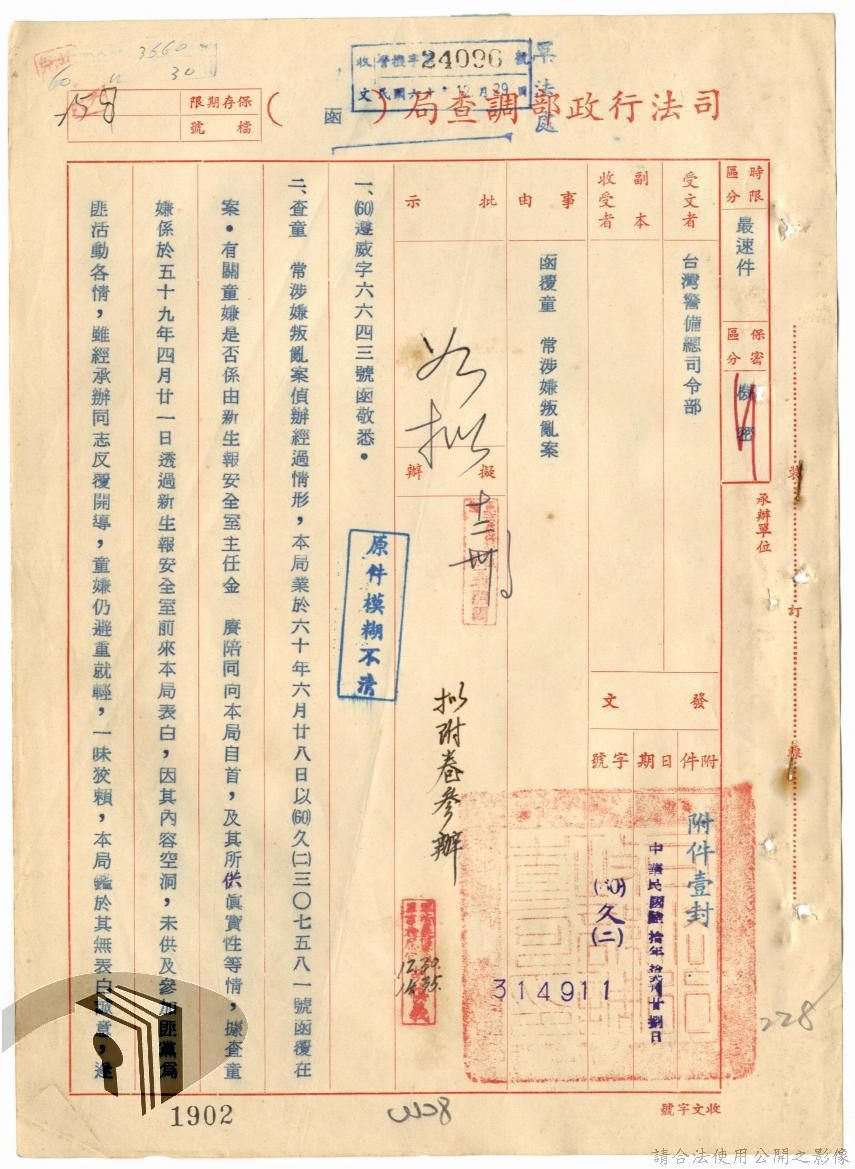 司法行政部調查局（函）
保存期限
檔號
158
3660
60 11 30
收 警機字第24096號
文 民國六十年12月29日
軍法處
時限區分
最速件
保密區分
機密
受文者
台灣警備總司令部
副本收受者
事由
函覆童　常涉嫌叛亂案
批示
擬辦
如擬
十二卅
擬附卷參辦
12.30.
承辦單位
裝
訂
線
發文
附件
日期
字號
附件壹封
中華民國陸拾年拾貳月廿捌日
(60)久(二)
314911
原件模糊不清
一、(60)遵威字六六四三號函敬悉。
二、查童　常涉嫌叛亂案偵辦經過情形，本局業於六十年六月廿八日以(60)久(二)三〇七五八一號函覆在
案。有關童嫌是否係由新生報安全室主任金　賡陪同向本局自首，及其所供眞實性等情，據查童
嫌係於五十九年四月廿一日透過新生報安全室前來本局表白，因其內容空洞，未供及參加匪黨爲
匪活動各情，雖經承辦同志反覆開導，童嫌仍避重就輕，一味狡賴，本局鑑於其無表白誠意，遂
228
收文字號
1902
請合法使用公開之影像